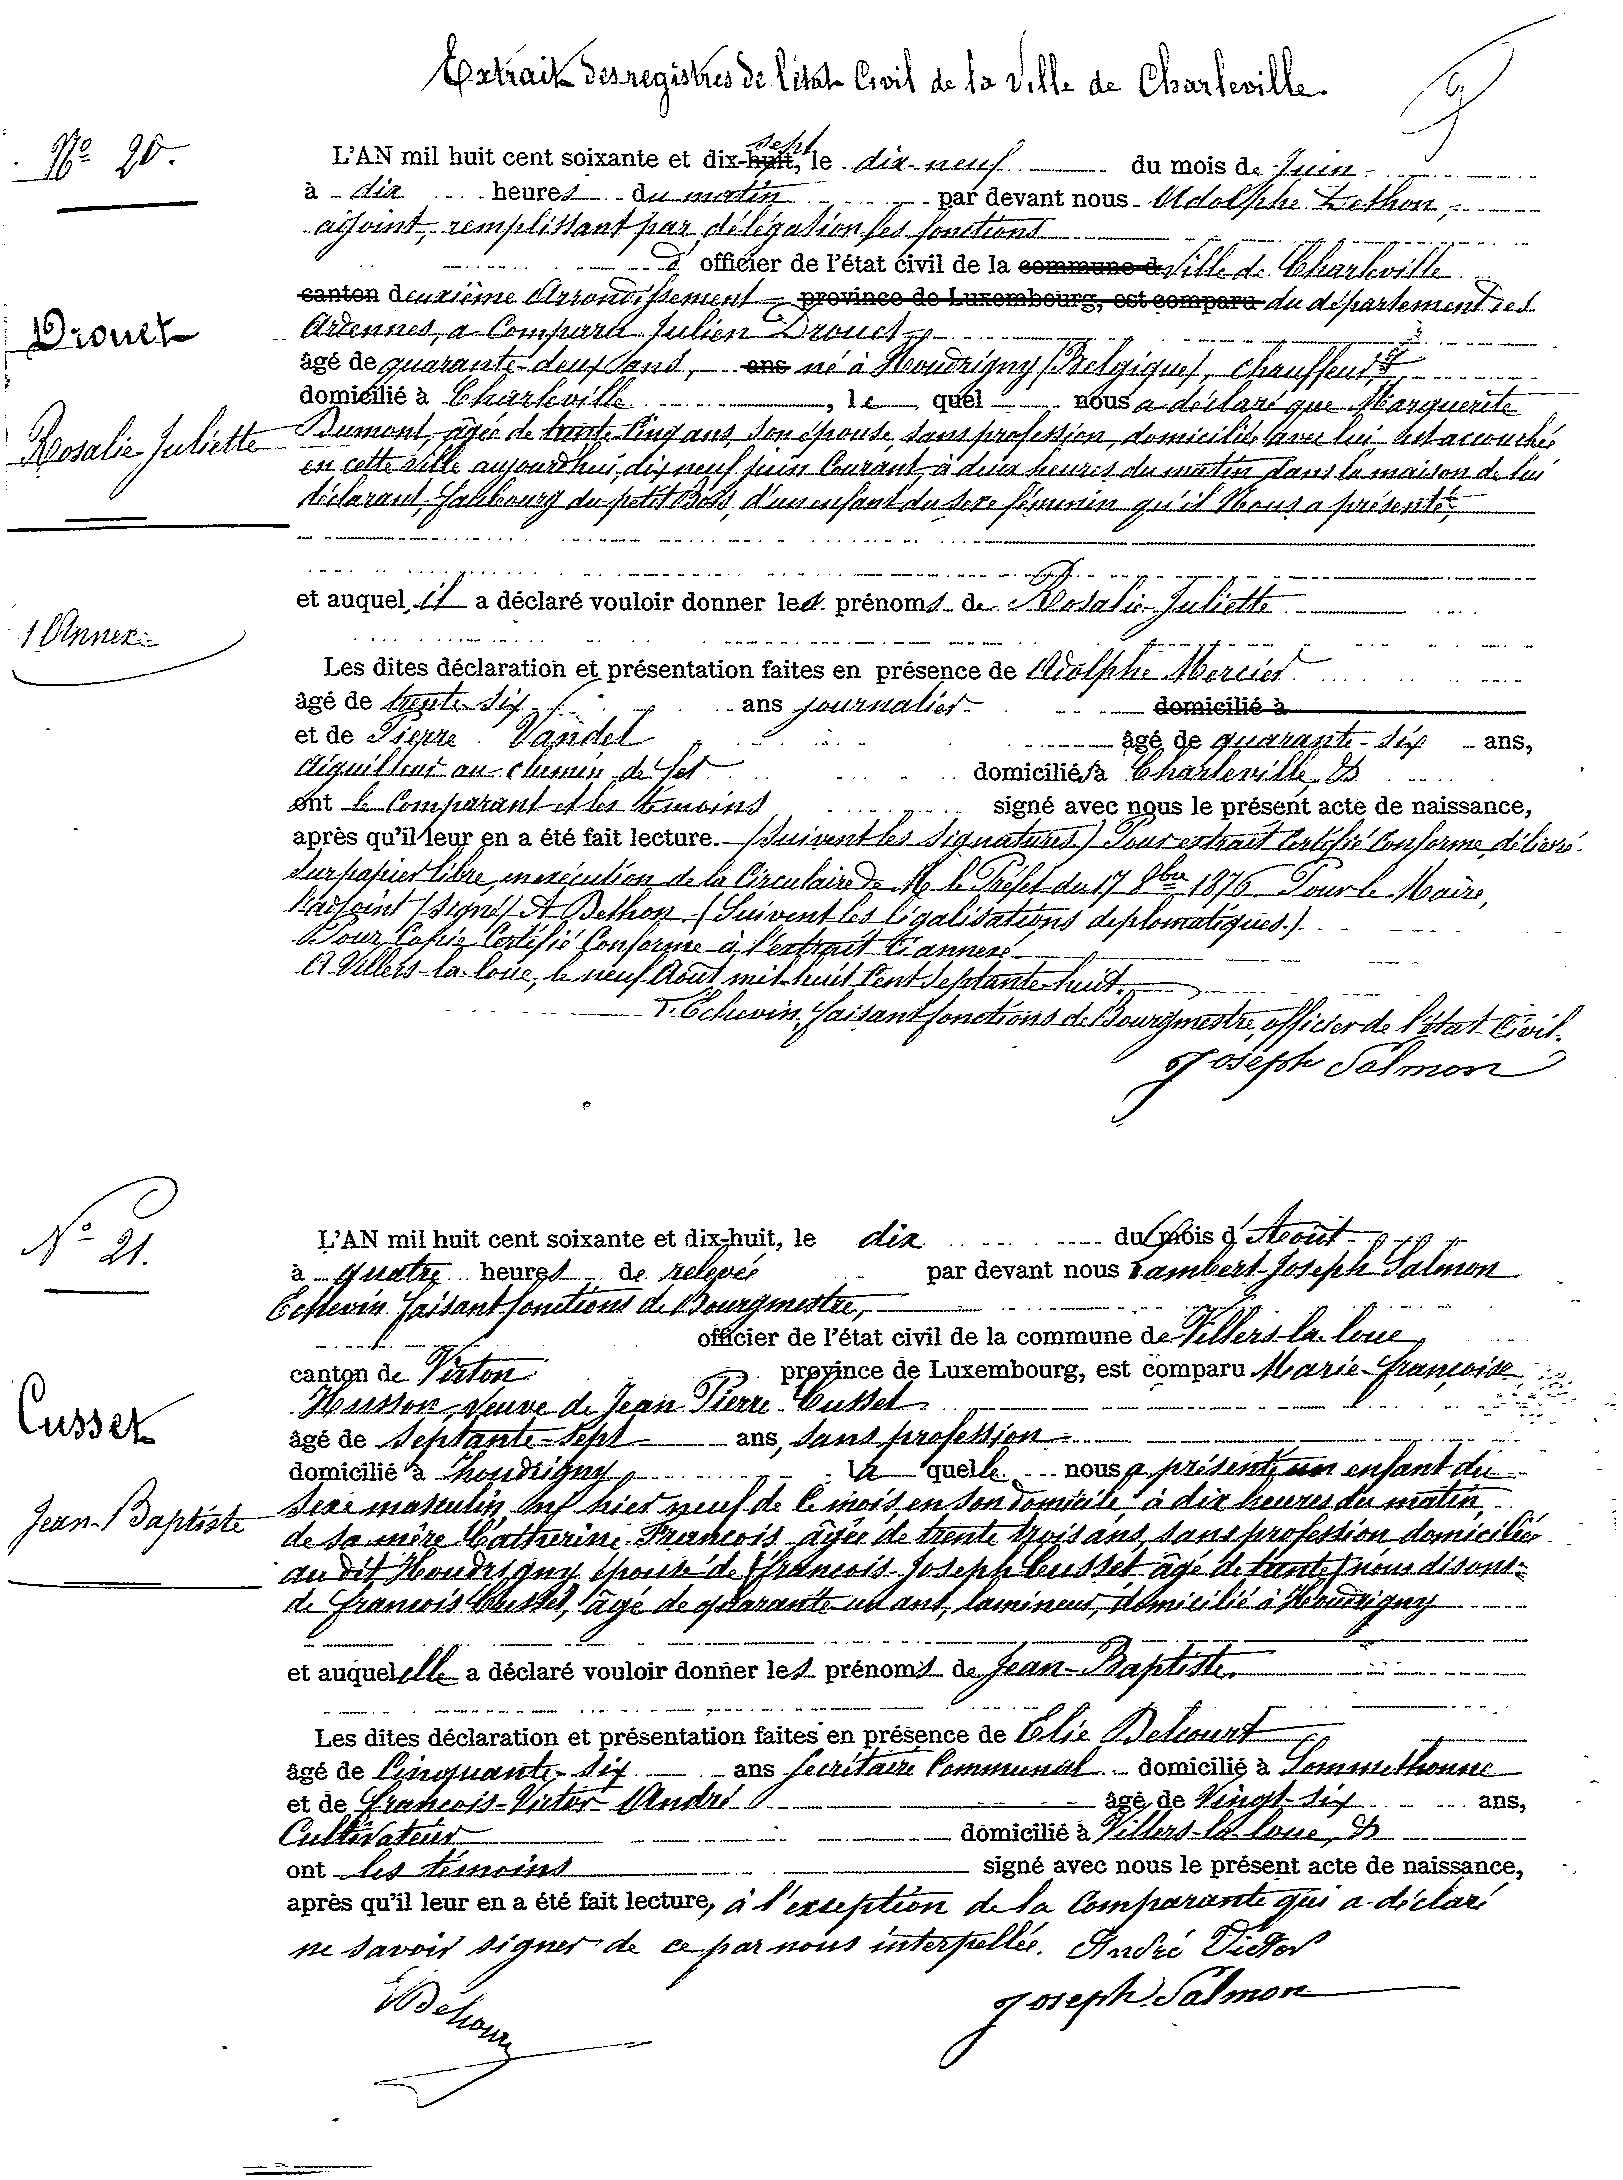 Extrait des registres de l'état Civil de la Ville de Charleville.
N° 20.
L'AN mil huit cent soixante et dix-huit, sept le dix-neuf du mois de Juin
à dix heures du matin par devant nous Adolphe Bethon,
adjoint, remplissant par délégation les fonctions
d'officier de l'état civil de la commune d Ville de Charleville
canton deuxième Arrondissement province de Luxembourg, est comparu du département des
Ardennes, a Comparu Julien Drouet
Drouet
âgé de quarante-deux ans, ans né à Houdrigny (Belgique), chauffeur, &
domicilié à Charleville, le quel nous a déclaré que Marguerite
Rosalie Juliette
Dumont, âgée de trente cinq ans, son épouse, sans profession, domiciliée avec lui, est accouchée
en cette ville aujourd'hui, dix neuf juin Courant, à deux heures du matin dans la maison de lui
déclarant, faubourg du petit Bois, d'un enfant du sexe féminin qu'il Nous a présenté,
et auquel il a déclaré vouloir donner les prénoms de Rosalie-Juliette
1 Annex:
Les dites déclaration et présentation faites en présence de Adolphe Mercier
âgé de trente-six ans journalier domicilié à
et de Pierre Vandel âgé de quarante-six ans,
aiguilleur au chemin de fer domiciliés à Charleville, &
ont le Comparant et les témoins signé avec nous le présent acte de naissance,
après qu'il leur en a été fait lecture. (Suivent les signatures) Pour extrait Certifié Conforme, délivré
sur papier libre, en exécution de la Circulaire de M. le Préfet du 17 8bre 1876 Pour le Maire,
l'adjoint (signé) A Bethon (Suivent les légalisations diplomatiques.)
Pour Copie Certifié Conforme à l'extrait Ci annexé
A Villers-la-loue, le neuf Août mil-huit Cent Septante-huit.
L'Echevin, faisant fonctions de Bourgmestre, officier de l'état Civil.
Joseph Salmon
N° 21.
L'AN mil huit cent soixante et dix-huit, le dix du mois d'Août
à quatre heures de relevée par devant nous Lambert-Joseph Salmon
Echevin faisant fonctions de Bourgmestre,
officier de l'état civil de la commune de Villers-la-loue,
canton de Virton province de Luxembourg, est comparu Marie-Françoise
Cusset
Husson, veuve de Jean Pierre Cusset
âgé de Septante-Sept ans, sans profession
domicilié à houdrigny, la quelle nous a présenté un enfant du
Jean-Baptiste
sexe masculin, né hier neuf de Ce mois, en son domicile, à dix heures du matin,
de sa mère Catherine François, âgée de trente trois ans, sans profession domiciliée
au dit Houdrigny, épouse de (François-Joseph Cusset, âgé de trente) nous disons-
de François Cusset, âgé de quarante-un ans, lamineur, domicilié à Houdrigny
et auquel elle a déclaré vouloir donner les prénoms de Jean-Baptiste.
Les dites déclaration et présentation faites en présence de Elie Delcourt
âgé de Cinquante-six ans Secrétaire Communal domicilié à Sommethonne
et de François-Victor André âgé de Vingt-six ans,
Cultivateur domicilié à Villers-la-loue, &
ont les témoins signé avec nous le présent acte de naissance,
après qu'il leur en a été fait lecture, à l'exception de la Comparante qui a déclaré
ne savoir signer de ce par nous interpellée. André Victor
Joseph Salmon